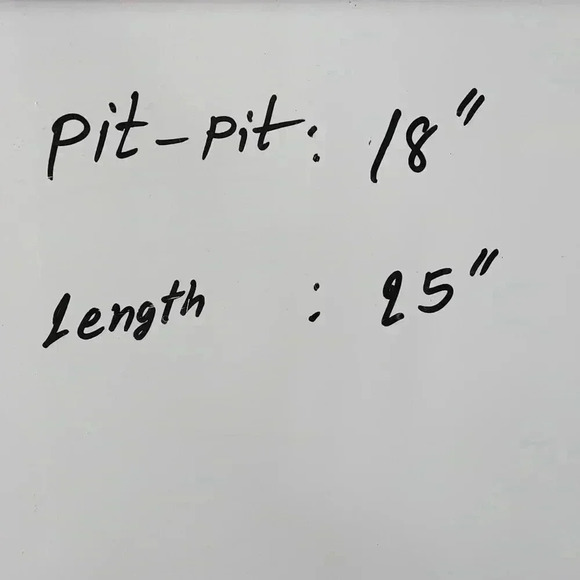 Pit-Pit: 18"
Length : 25"